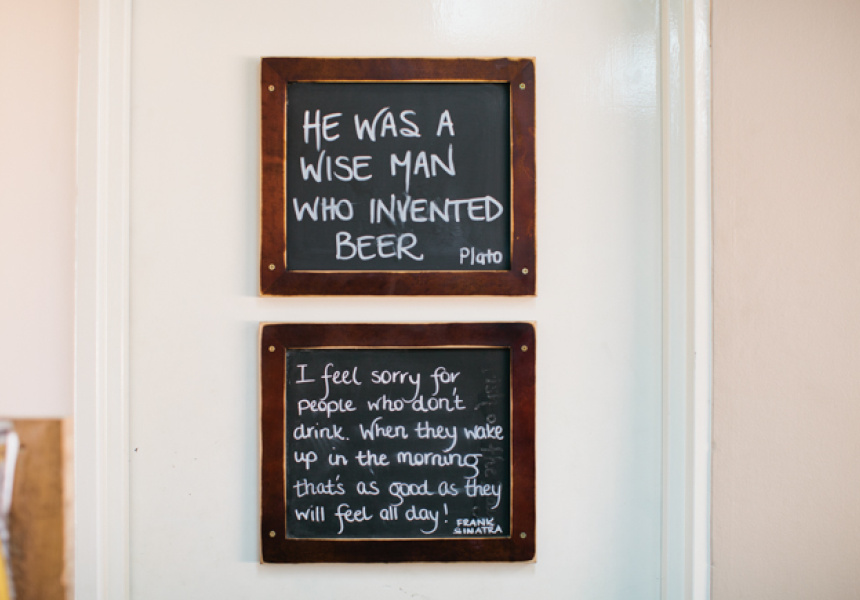 HE WAS A
WISE MAN
WHO INVENTED
BEER Plato
I feel sorry for
people who don't
drink. When they wake
up in the morning
that's as good as they
will feel all day! FRANK
SINATRA